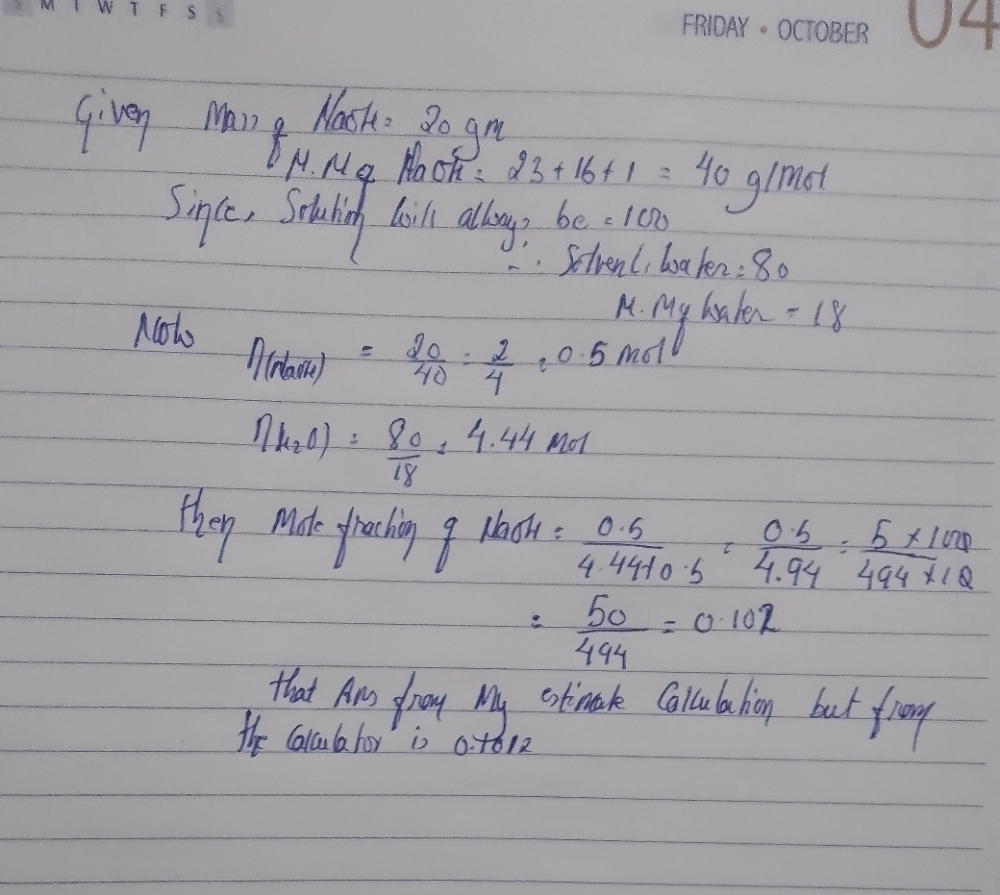 S M T W T F S S
FRIDAY • OCTOBER 04
Given Mass of NaOH = 20 gm
M.M of NaOH = 23 + 16 + 1 = 40 g/mol
Since, Solution will always be = 100
∴ Solvent, water = 80
M. M of water = 18
Now η(NaOH) = 20/40 = 2/4 = 0.5 mol
η(H2O) = 80/18 = 4.44 Mol
then Mole fraction of NaOH = 0.5/4.44+0.5 = 0.5/4.94 = 5 × 100/494 × 10
= 50/494 = 0.102
that Ans from My estimate Calculation but from
the Calculator is 0.1012